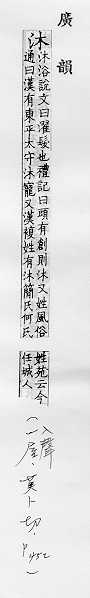 廣韻
沐 沐浴說文曰濯髮也禮記曰頭有創則沐又姓風俗
通曰漢有東平太守沐寵又漢複姓有沐簡氏何氏
姓苑云今
任城人
(入聲
一屋,莫卜切,P452)